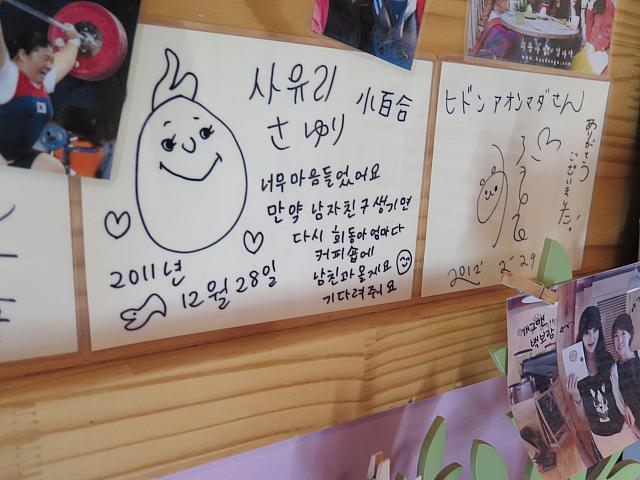 사유리
小百合
さゆり
너무 마음들었어요
만약 남자친구 생기면
다시 희동아 엄마다
커피숍에
남친과 올게요
기다려줘요
2011년
12월 28일
ヒドンアオンマダさん
ありがとう
ございました!
2012 2 29
개그맨